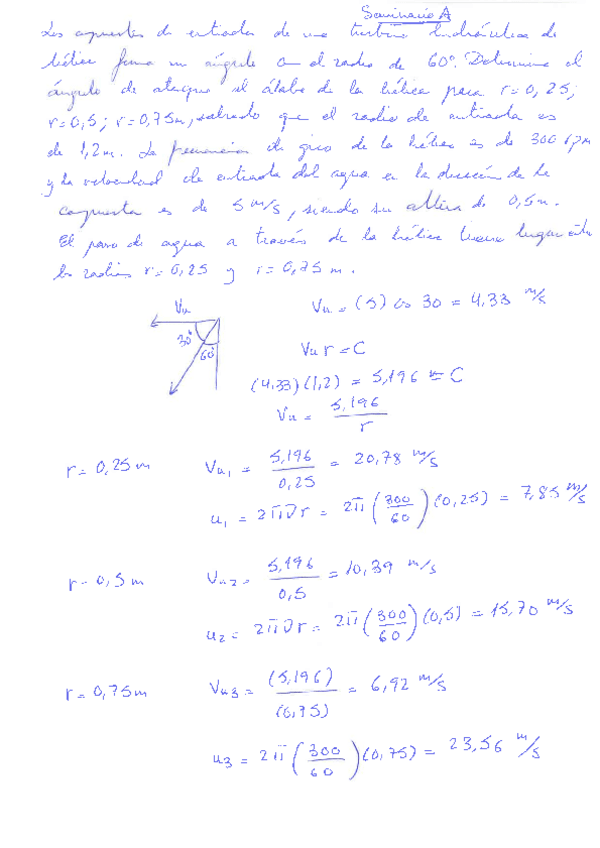 Seminario A
Las compuertas de entrada de una turbina hidráulica de
hélice forma un ángulo con el radio de 60º. Determine el
ángulo de ataque al álabe de la hélice para r=0,25;
r=0,5; r=0,75m, sabiendo que el radio de entrada es
de 1,2m. La frecuencia de giro de la hélice es de 300 rpm
y la velocidad de entrada del agua en la dirección de la
compuerta es de 5 m/s, siendo su altura de 0,5m.
El paso de agua a través de la hélice tiene lugar entre
los radios r=0,25 y r=0,75m.
Vu
30º
60º
Vu = (5) cos 30 = 4,33 m/s
Vu r = C
(4,33)(1,2) = 5,196 = C
Vu = 5,196 / r
r = 0,25 m Vu1 = 5,196 / 0,25 = 20,78 m/s
u1 = 2πνr = 2π(300/60)(0,25) = 7,85 m/s
r = 0,5 m Vu2 = 5,196 / 0,5 = 10,39 m/s
u2 = 2πνr = 2π(300/60)(0,5) = 15,70 m/s
r = 0,75m Vu3 = (5,196) / (0,75) = 6,92 m/s
u3 = 2π(300/60)(0,75) = 23,56 m/s